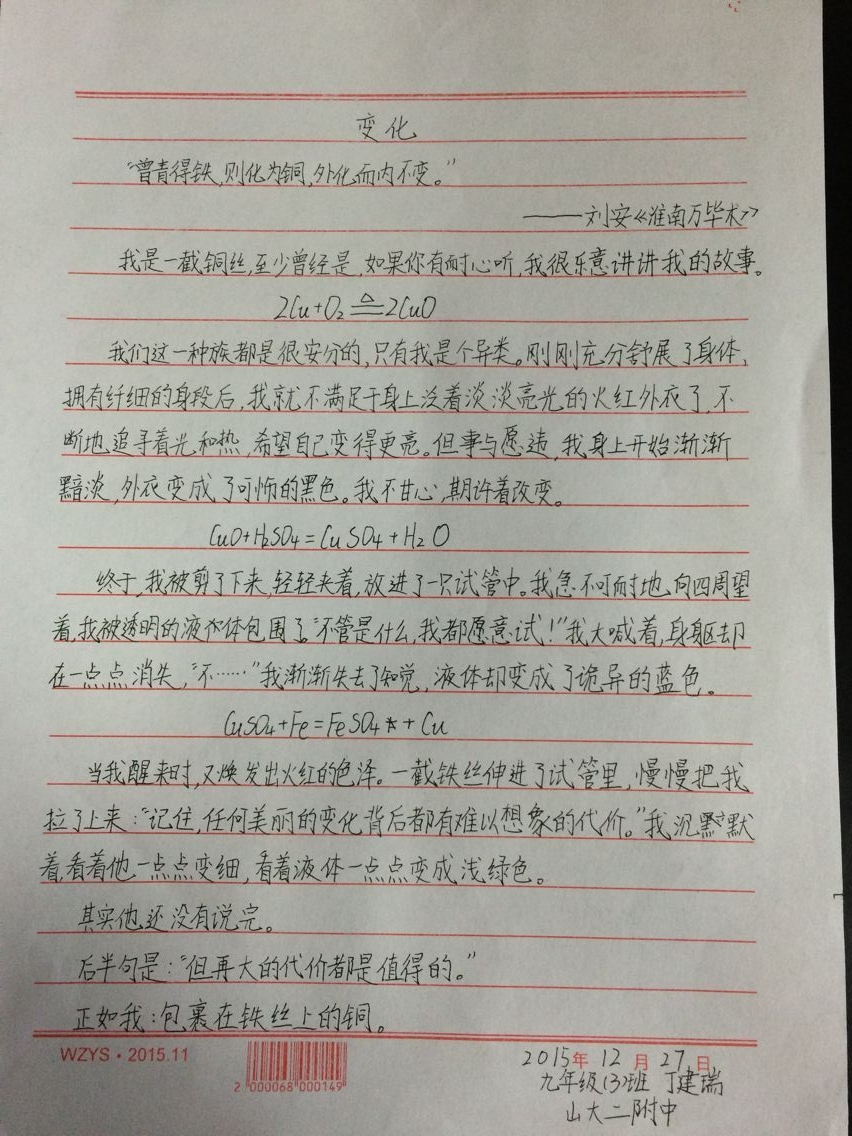 变化
“曾青得铁,则化为铜,外化而内不变。”
——刘安《淮南万毕术》
我是一截铜丝,至少曾经是,如果你有耐心听,我很乐意讲讲我的故事。
2Cu+O₂ ≜ 2CuO
我们这一种族都是很安分的,只有我是个异类。刚刚充分舒展了身体,
拥有纤细的身段后,我就不满足于身上泛着淡淡亮光的火红外衣了,不
断地追寻着光和热,希望自己变得更亮。但事与愿违,我身上开始渐渐
黯淡,外衣变成了可怖的黑色。我不甘心,期许着改变。
CuO+H₂SO₄=CuSO₄+H₂O
终于,我被剪了下来,轻轻夹着,放进了一只试管中。我急不可耐地向四周望
着,我被透明的液体包围了。“不管是什么,我都愿意试!”我大喊着,身躯却
在一点点消失,“不……”我渐渐失去了知觉,液体却变成了诡异的蓝色。
CuSO₄+Fe=FeSO₄+Cu
当我醒来时,又焕发出火红的色泽。一截铁丝伸进了试管里,慢慢把我
拉了上来:“记住,任何美丽的变化背后都有难以想象的代价。”我沉默
着,看着他一点点变细,看着液体一点点变成浅绿色。
其实他还没有说完。
后半句是:“但再大的代价都是值得的。”
正如我:包裹在铁丝上的铜。
WZYS·2015.11
2 000068 000149
2015年 12 月 27 日
九年级(3)班 丁建瑞
山大二附中